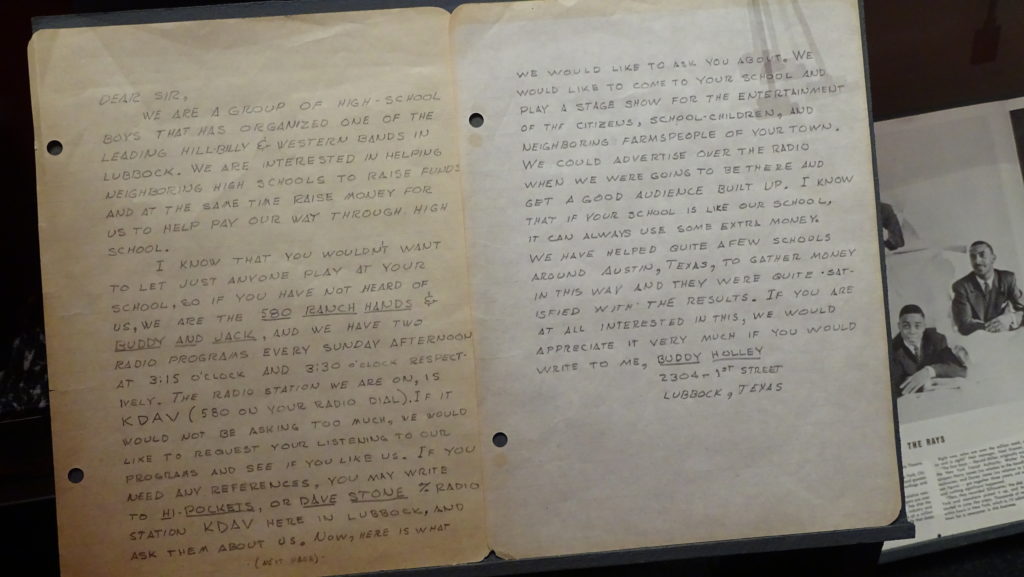 DEAR SIR,
WE ARE A GROUP OF HIGH-SCHOOL
BOYS THAT HAS ORGANIZED ONE OF THE
LEADING HILL-BILLY & WESTERN BANDS IN
LUBBOCK. WE ARE INTERESTED IN HELPING
NEIGHBORING HIGH SCHOOLS TO RAISE FUNDS
AND AT THE SAME TIME RAISE MONEY FOR
US TO HELP PAY OUR WAY THROUGH HIGH
SCHOOL.
I KNOW THAT YOU WOULDN'T WANT
TO LET JUST ANYONE PLAY AT YOUR
SCHOOL, SO IF YOU HAVE NOT HEARD OF
US, WE ARE THE 580 RANCH HANDS &
BUDDY AND JACK, AND WE HAVE TWO
RADIO PROGRAMS EVERY SUNDAY AFTERNOON
AT 3:15 O'CLOCK AND 3:30 O'CLOCK RESPECT-
IVELY. THE RADIO STATION WE ARE ON, IS
KDAV (580 ON YOUR RADIO DIAL). IF IT
WOULD NOT BE ASKING TOO MUCH, WE WOULD
LIKE TO REQUEST YOUR LISTENING TO OUR
PROGRAMS AND SEE IF YOU LIKE US. IF YOU
NEED ANY REFERENCES, YOU MAY WRITE
TO HI-POCKETS, OR DAVE STONE % RADIO
STATION KDAV HERE IN LUBBOCK, AND
ASK THEM ABOUT US. NOW, HERE IS WHAT
(NEXT PAGE)
WE WOULD LIKE TO ASK YOU ABOUT. WE
WOULD LIKE TO COME TO YOUR SCHOOL AND
PLAY A STAGE SHOW FOR THE ENTERTAINMENT
OF THE CITIZENS, SCHOOL-CHILDREN, AND
NEIGHBORING FARMSPEOPLE OF YOUR TOWN.
WE COULD ADVERTISE OVER THE RADIO
WHEN WE WERE GOING TO BE THERE AND
GET A GOOD AUDIENCE BUILT UP. I KNOW
THAT IF YOUR SCHOOL IS LIKE OUR SCHOOL,
IT CAN ALWAYS USE SOME EXTRA MONEY.
WE HAVE HELPED QUITE A FEW SCHOOLS
AROUND AUSTIN, TEXAS, TO GATHER MONEY
IN THIS WAY AND THEY WERE QUITE SAT-
ISFIED WITH THE RESULTS. IF YOU ARE
AT ALL INTERESTED IN THIS, WE WOULD
APPRECIATE IT VERY MUCH IF YOU WOULD
WRITE TO ME, BUDDY HOLLEY
2304-1ST STREET
LUBBOCK, TEXAS
THE RAYS